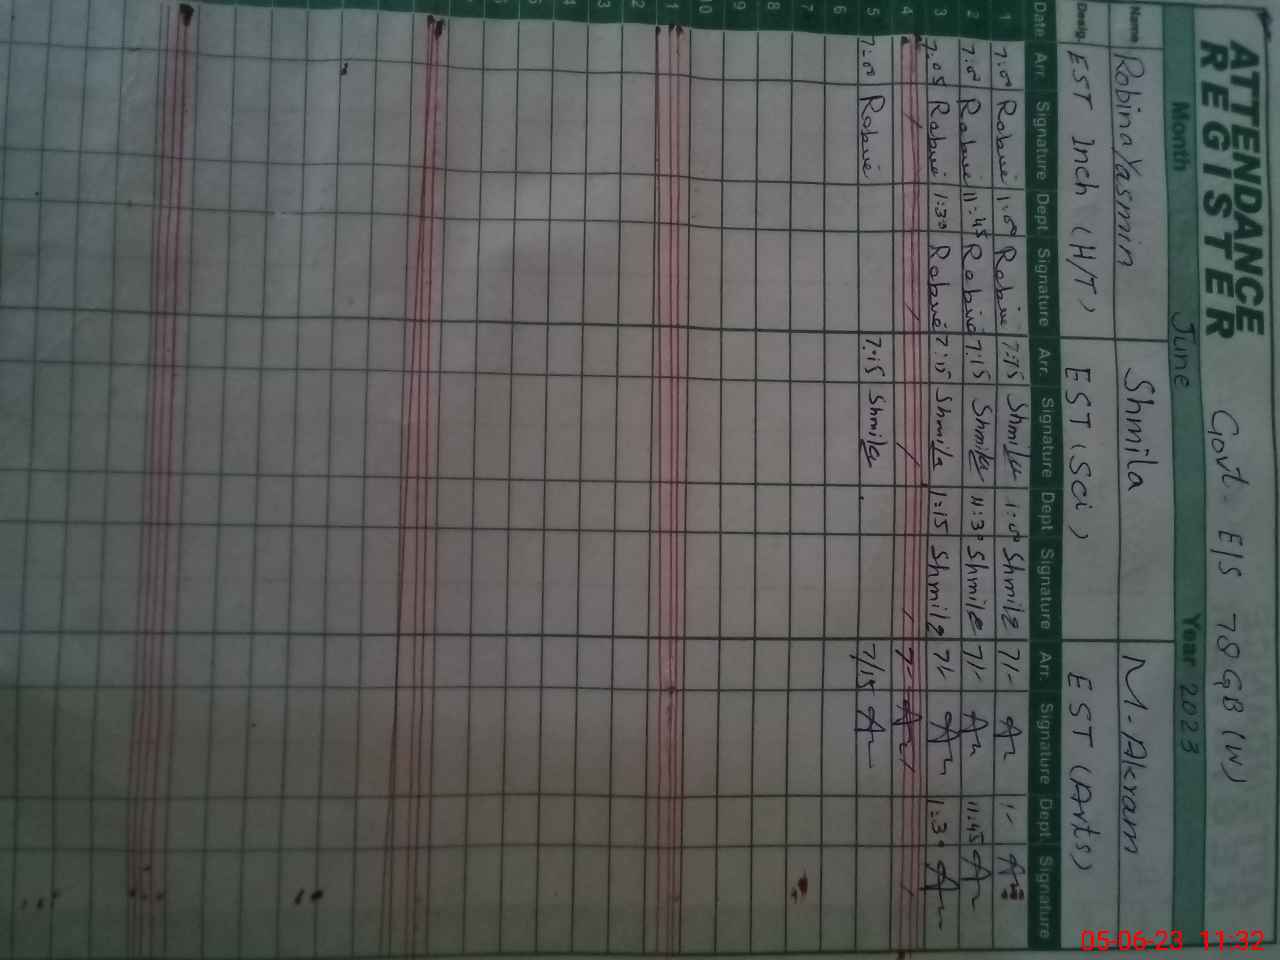 ATTENDANCE
REGISTER
Govt. E/S 78 GB (W)
Month June Year 2023
Name Robina Yasmin Shmila M. Akram
Desig. EST Inch (H/T) EST (Sci) EST (Arts)
Date Arr. Signature Dept Signature Arr. Signature Dept Signature Arr. Signature Dept. Signature
1 7:00 1:00 7:15 Shmila 1:00 Shmila 7/-
2 7:00 11:45 7:15 Shmila 11:30 Shmila 7/- 11:45
3 7:05 1:30 7:15 Shmila 1:15 Shmila 7/- 1:30
4
5 7:00 7:15 Shmila 7/15
6
7
8
9
10
11
05-06-23 11:32